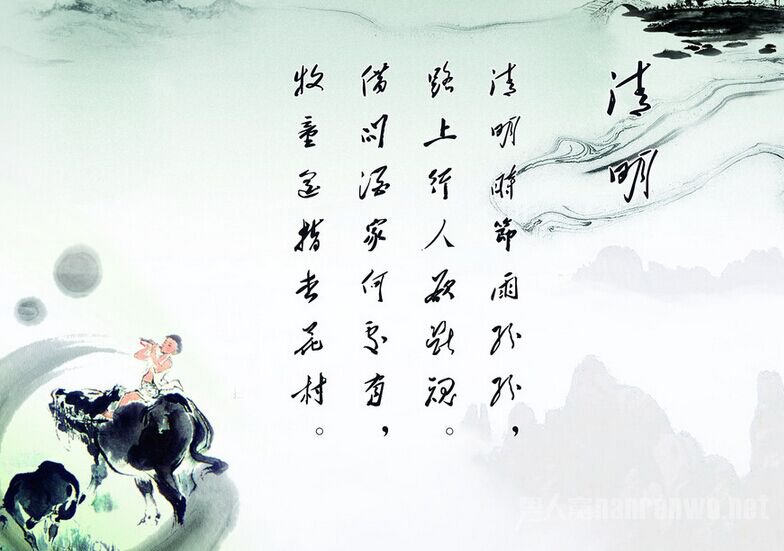 清明
清明时节雨纷纷，
路上行人欲断魂。
借问酒家何处有，
牧童遥指杏花村。
男人窝nanrenwo.net